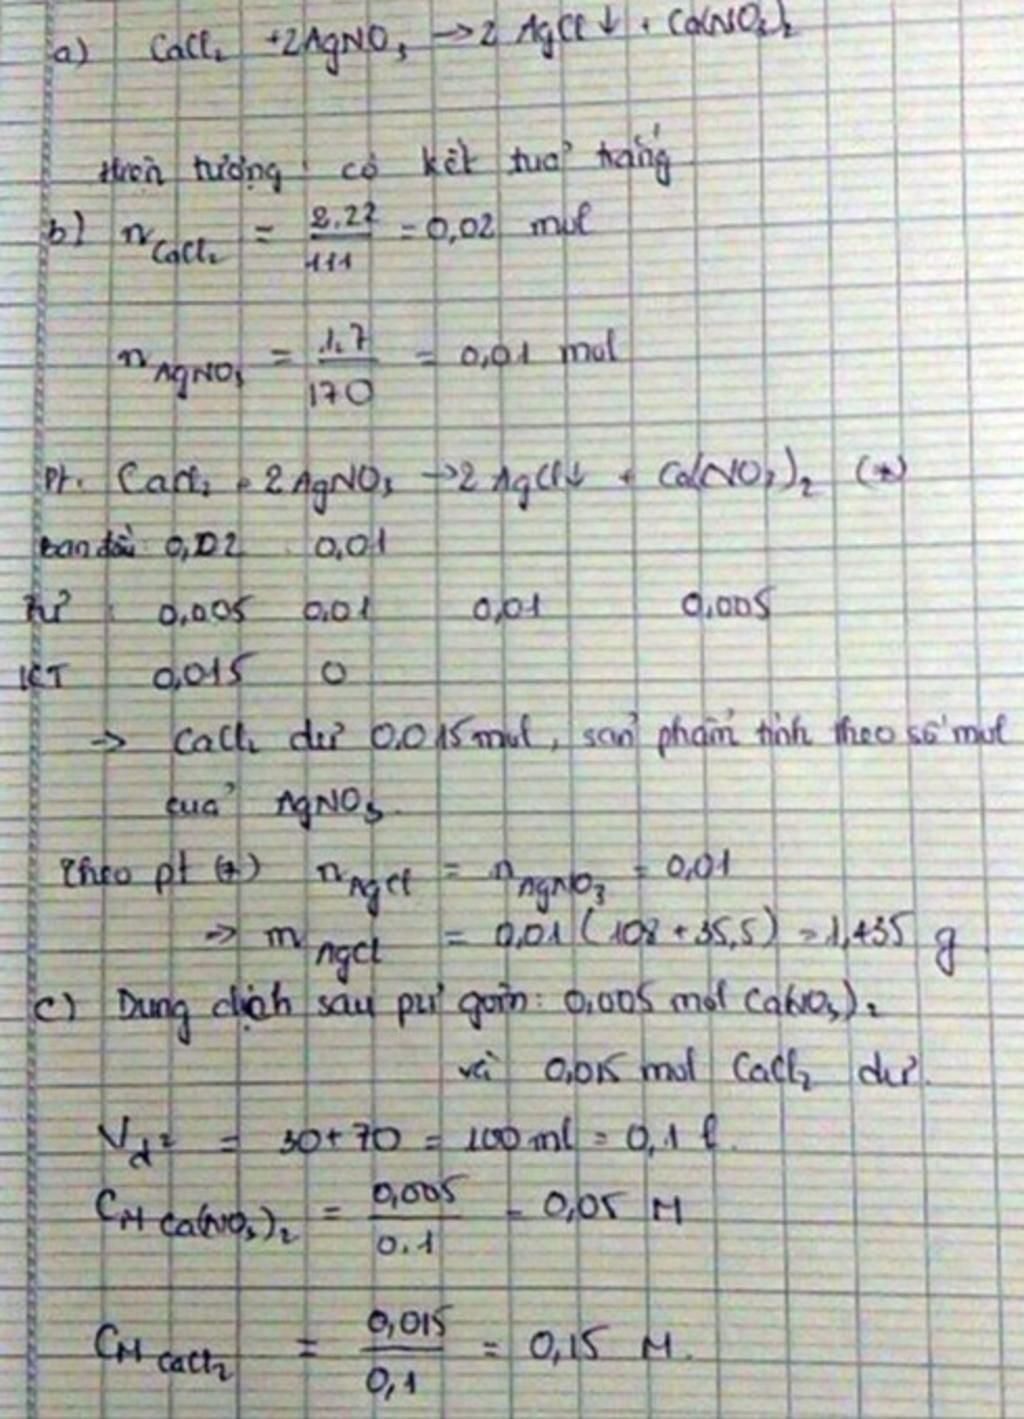 a) CaCl₂ + 2AgNO₃ → 2 AgCl ↓ + Ca(NO₃)₂
Hiện tượng : có kết tủa trắng
b) n CaCl₂ = 2.22 / 111 = 0,02 mol
n AgNO₃ = 1.7 / 170 = 0,01 mol
Pt. CaCl₂ + 2 AgNO₃ → 2 AgCl↓ + Ca(NO₃)₂ (*)
ban đầu 0,02 0,01
Pư : 0,005 0,01 0,01 0,005
KT 0,015 0
→ CaCl₂ dư 0.015 mol, sản phẩm tính theo số mol
của AgNO₃.
Theo pt (*) n AgCl = n AgNO₃ = 0,01
→ m AgCl = 0,01 (108 + 35,5) = 1,435 g
c) Dung dịch sau pư gồm: 0,005 mol Ca(NO₃)₂
và 0,015 mol CaCl₂ dư.
V d² = 30 + 70 = 100 ml = 0,1 l.
CM Ca(NO₃)₂ = 0,005 / 0.1 = 0,05 M
CM CaCl₂ = 0,015 / 0,1 = 0,15 M.